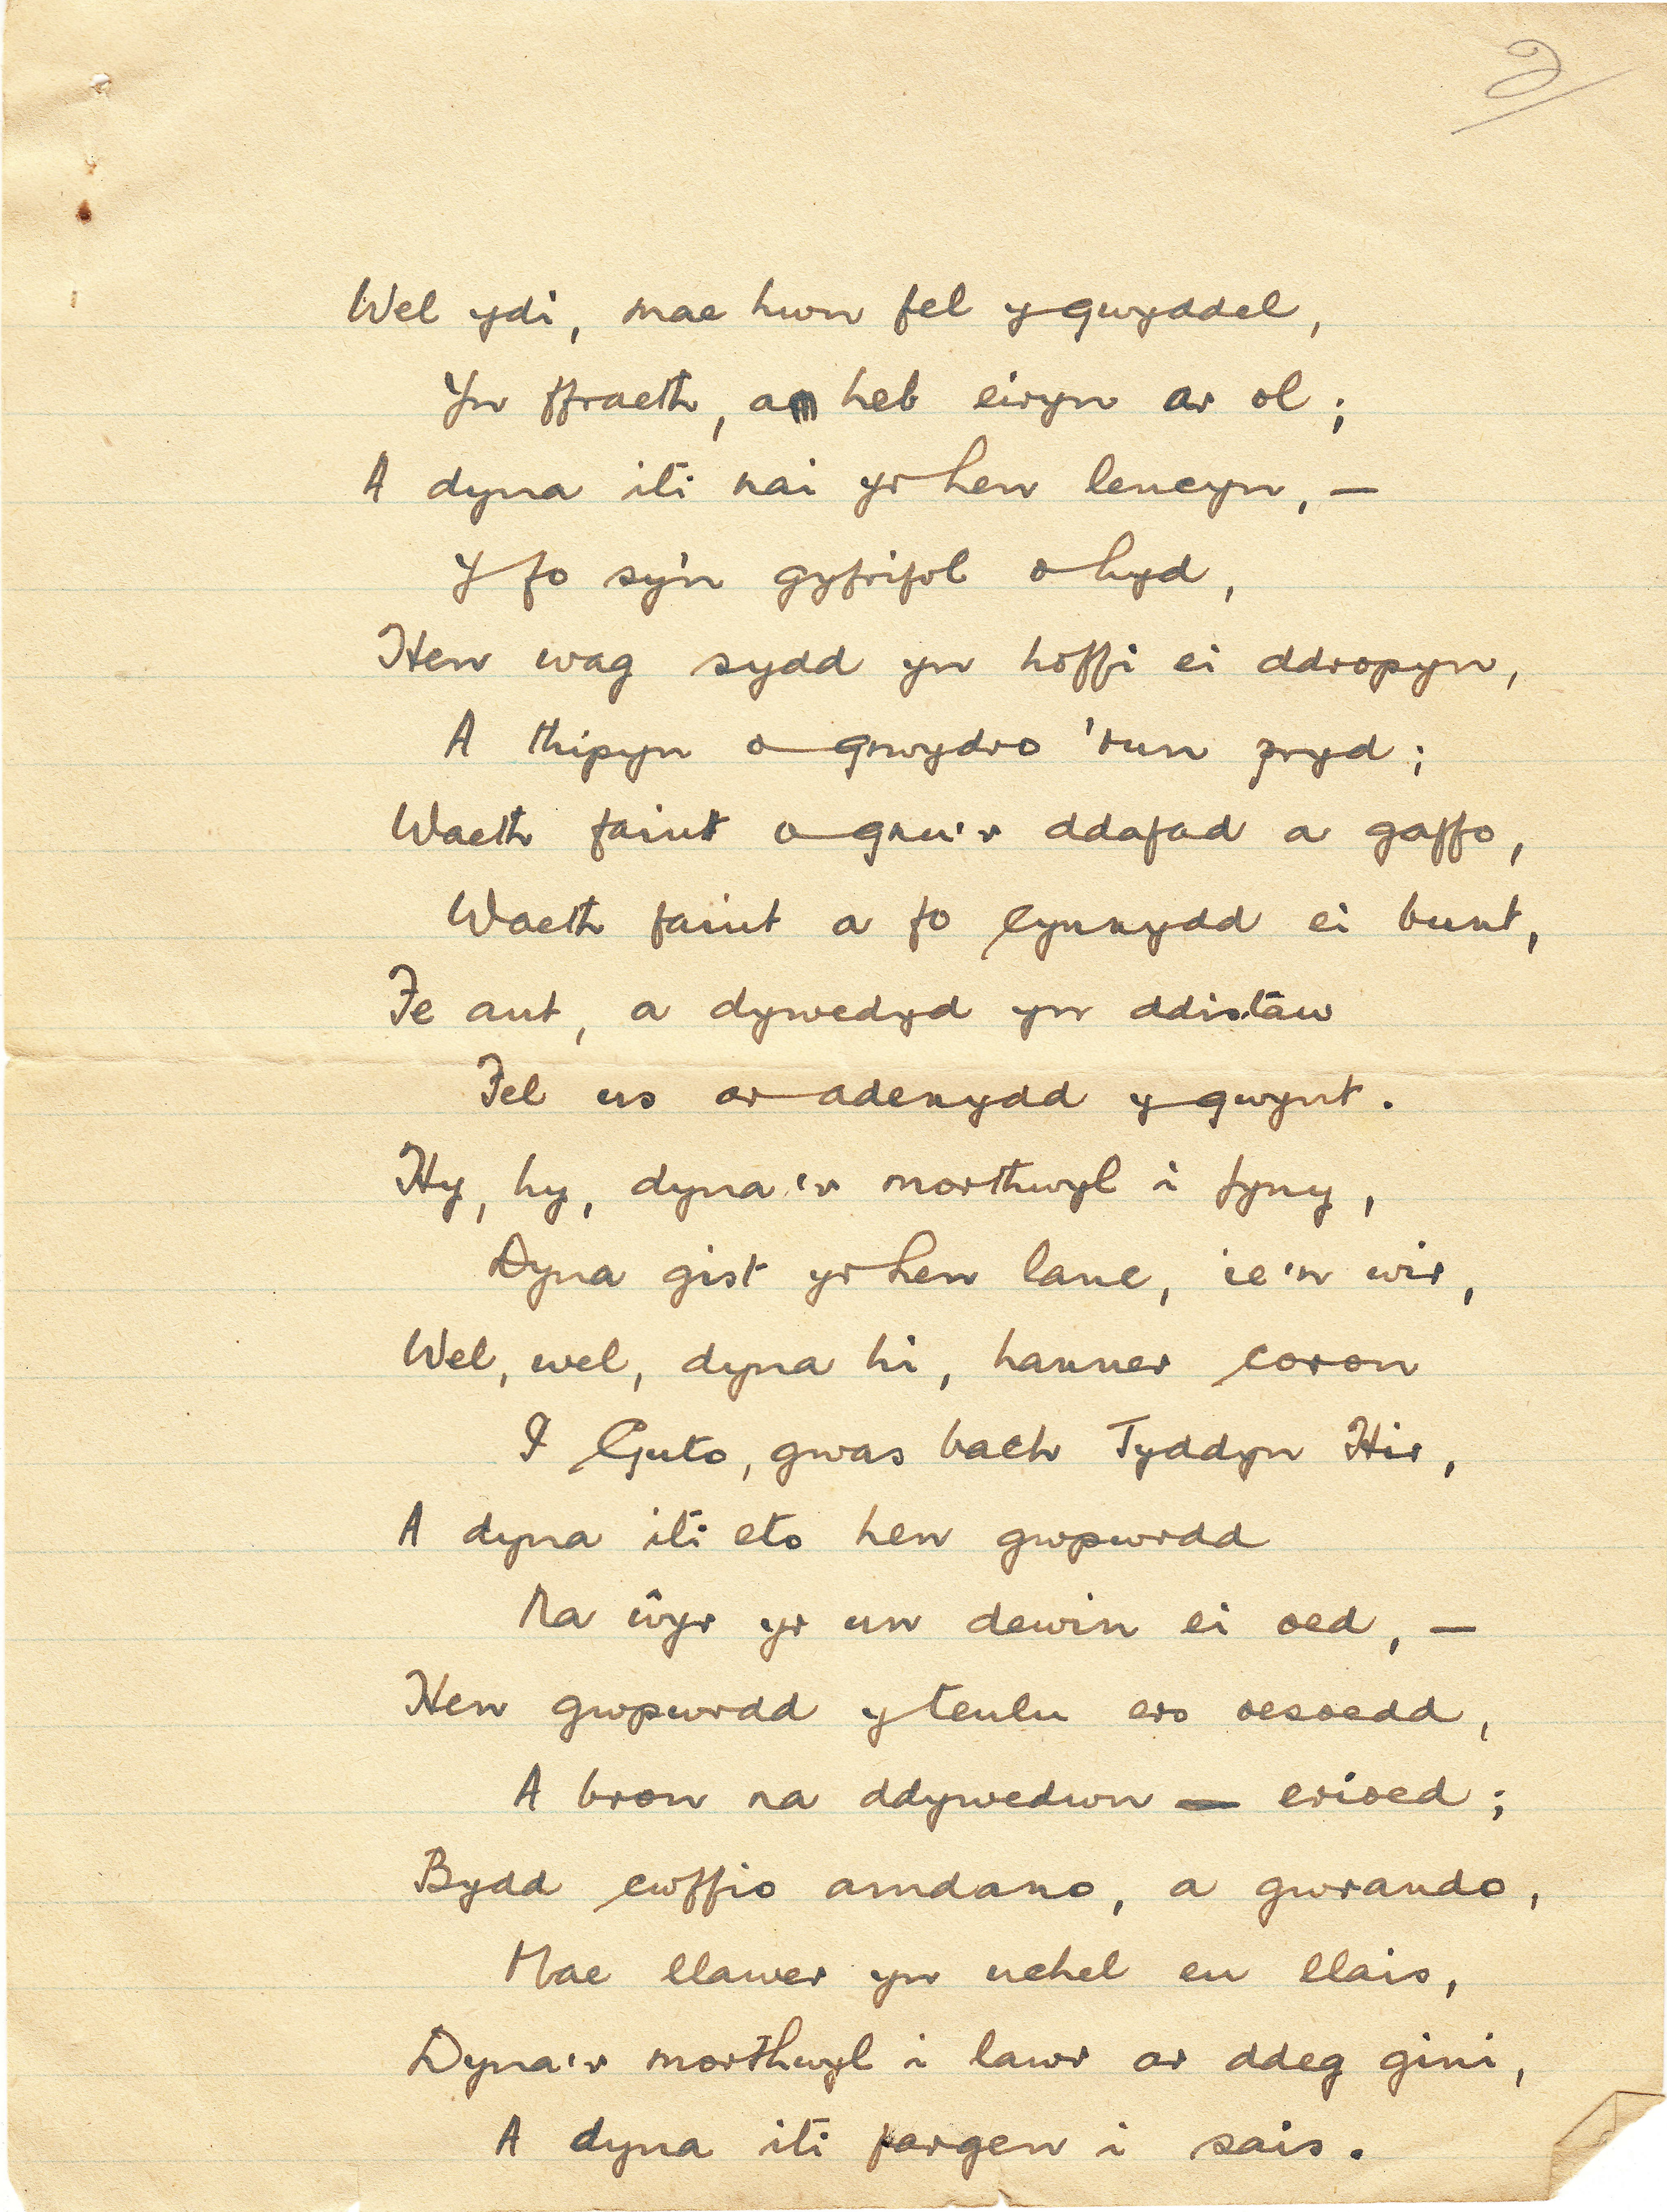 2
Wel ydi, mae hwn fel y gwyddel,
Yn ffraeth, a heb eiryn ar ol;
A dyna iti nai yr hen lencyn, —
Y fo sy'n gyfrifol o hyd,
Hen wag sydd yn hoffi ei ddropyn,
A thipyn o grwydro 'run pryd;
Waeth faint o gnu'r ddafad a gaffo,
Waeth faint a fo cynnydd ei bunt,
Fe ant, a dywedyd yn ddistaw
Fel us ar adenydd y gwynt.
Hy, hy, dyna'r morthwyl i fyny,
Dyna gist yr hen lanc, ie'n wir,
Wel, wel, dyna hi, hanner coron
I Guto, gwas bach Tyddyn Hir,
A dyna iti eto hen gwpwrdd
Na ŵyr yr un dewin ei oed, —
Hen gwpwrdd y teulu ers oesoedd,
A bron na ddywedwn — erioed;
Bydd cwffio amdano, a gwrando,
Mae llawer yn uchel eu llais,
Dyna'r morthwyl i lawr ar ddeg gini,
A dyna iti fargen i sais.